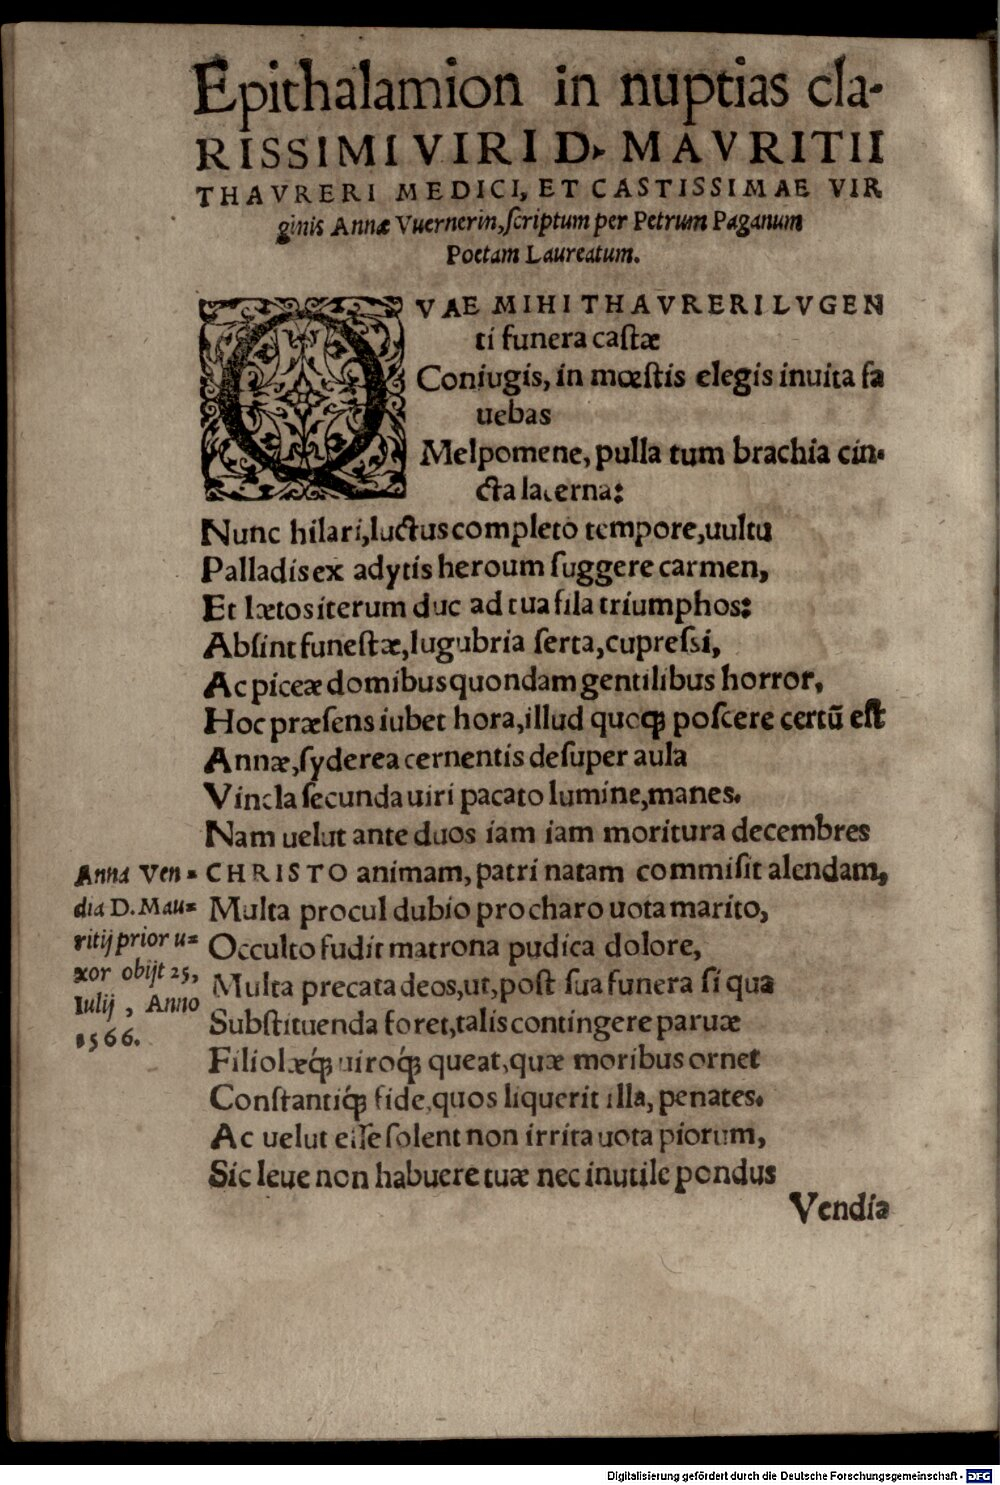 Epithalamion in nuptias cla-
RISSIMI VIRI D. MAVRITII
THAVRERI MEDICI, ET CASTISSIMAE VIR
ginis Annæ Vuernerin, ſcriptum per Petrum Paganum
Poetam Laureatum.
QVAE MIHI THAVRERI LVGEN
ti funera caſtæ
Coniugis, in mœſtis elegis inuita fa
uebas
Melpomene, pulla tum brachia cin-
cta lacerna:
Nunc hilari, luctus completo tempore, uultu
Palladis ex adytis heroum ſuggere carmen,
Et lætos iterum duc ad tua fila triumphos:
Abſint funeſtæ, lugubria ſerta, cupreſsi,
Ac piceæ domibus quondam gentilibus horror,
Hoc præſens iubet hora, illud quoqꝫ poſcere certũ eſt
Annæ, ſyderea cernentis deſuper aula
Vincla ſecunda uiri pacato lumine, manes.
Nam uelut ante duos iam iam moritura decembres
CHRISTO animam, patri natam commiſit alendam,
Multa procul dubio pro charo uota marito,
Occulto fudit matrona pudica dolore,
Multa precata deos, ut, poſt ſua funera ſi qua
Subſtituenda foret, talis contingere paruæ
Filiolæq́ꝫ uiroq́ꝫ queat, quæ moribus ornet
Conſtantiq́ꝫ fide, quos liquerit illa, penates.
Ac uelut eſſe ſolent non irrita uota piorum,
Sic leue non habuere tuæ nec inutile pondus
Vendia
Anna Ven=
dia D. Mau=
ritij prior u=
xor obijt 25,
Iulij, Anno
1566.
Digitalisierung gefördert durch die Deutsche Forschungsgemeinschaft - DFG